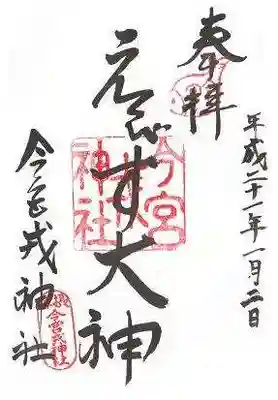 奉拝
平成二十一年一月二日
えびす大神
今宮戎神社
今宮神社
今宮戎神社